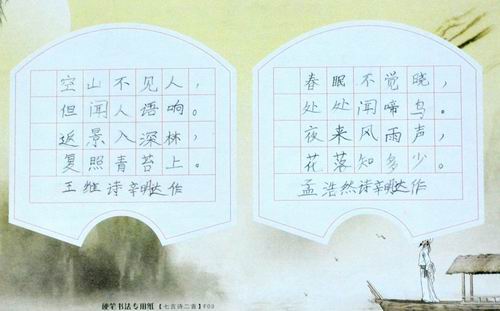 空山不见人，
但闻人语响。
返景入深林，
复照青苔上。
王维诗辛明达作
春眠不觉晓，
处处闻啼鸟。
夜来风雨声，
花落知多少。
孟浩然诗辛明达作
硬笔书法专用纸【七言诗二首】F03